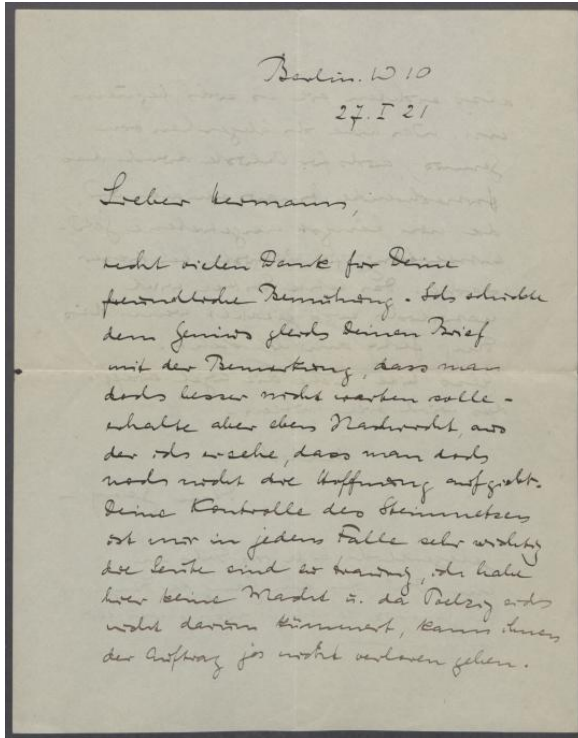 Berlin. W 10
27. I 21
Lieber Hermann,
recht vielen Dank für Deine
freundliche Bemühung. Ich schickte
dem Genius gleich Deinen Brief
mit der Bemerkung, dass man
doch besser nicht warten solle –
erhalte aber eben Nachricht, aus
der ich ersehe, dass man doch
noch nicht die Hoffnung aufgiebt.
Deine Kontrolle des Steinmetzen
ist mir in jedem Falle sehr wichtig
die Leute sind so traurig, ich habe
hier keine Macht u. da Poelzig sich
nicht darum kümmert, kann ihnen
der Auftrag ja nicht verloren gehen.